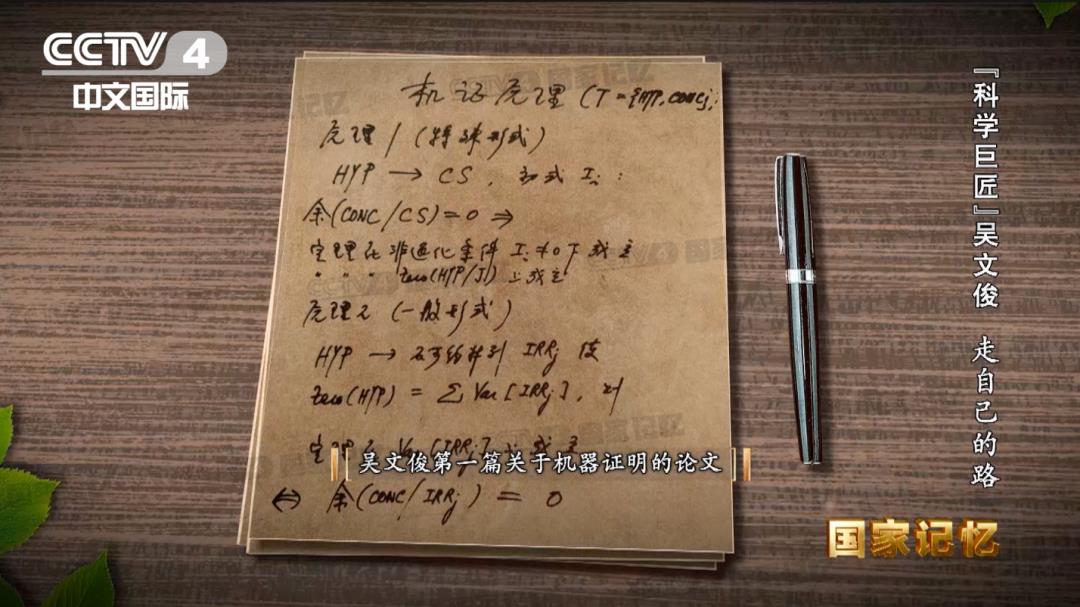 CCTV 4
中文国际
机证原理 (T = {HYP, CONC},
原理1 (特殊形式)
HYP → CS, 初式 Ii :
余(CONC/CS) = 0 ⇒
定理在非退化条件 Ii ≠ 0 下成立
" " " Zero(HYP/J) 上成立
原理2 (一般形式)
HYP → 不可约升列 IRRj 使
Zero(HYP) = Σ Var[IRRj], 则
定理在 Var[IRRj] 上成立
⇔ 余(CONC/IRRj) = 0
吴文俊第一篇关于机器证明的论文
『科学巨匠』吴文俊 走自己的路
国家记忆